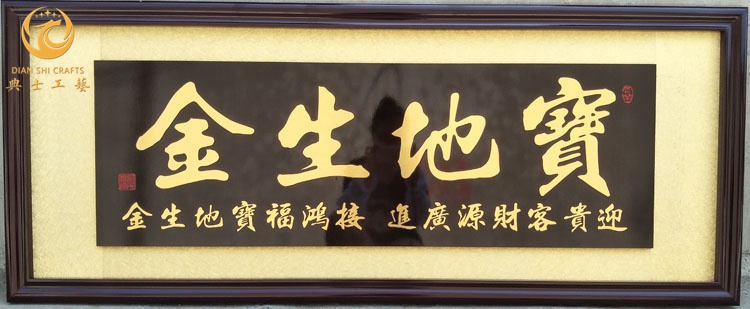 DIAN SHI CRAFTS
典士工藝
寶地生金
迎貴客財源廣進 接鴻福寶地生金